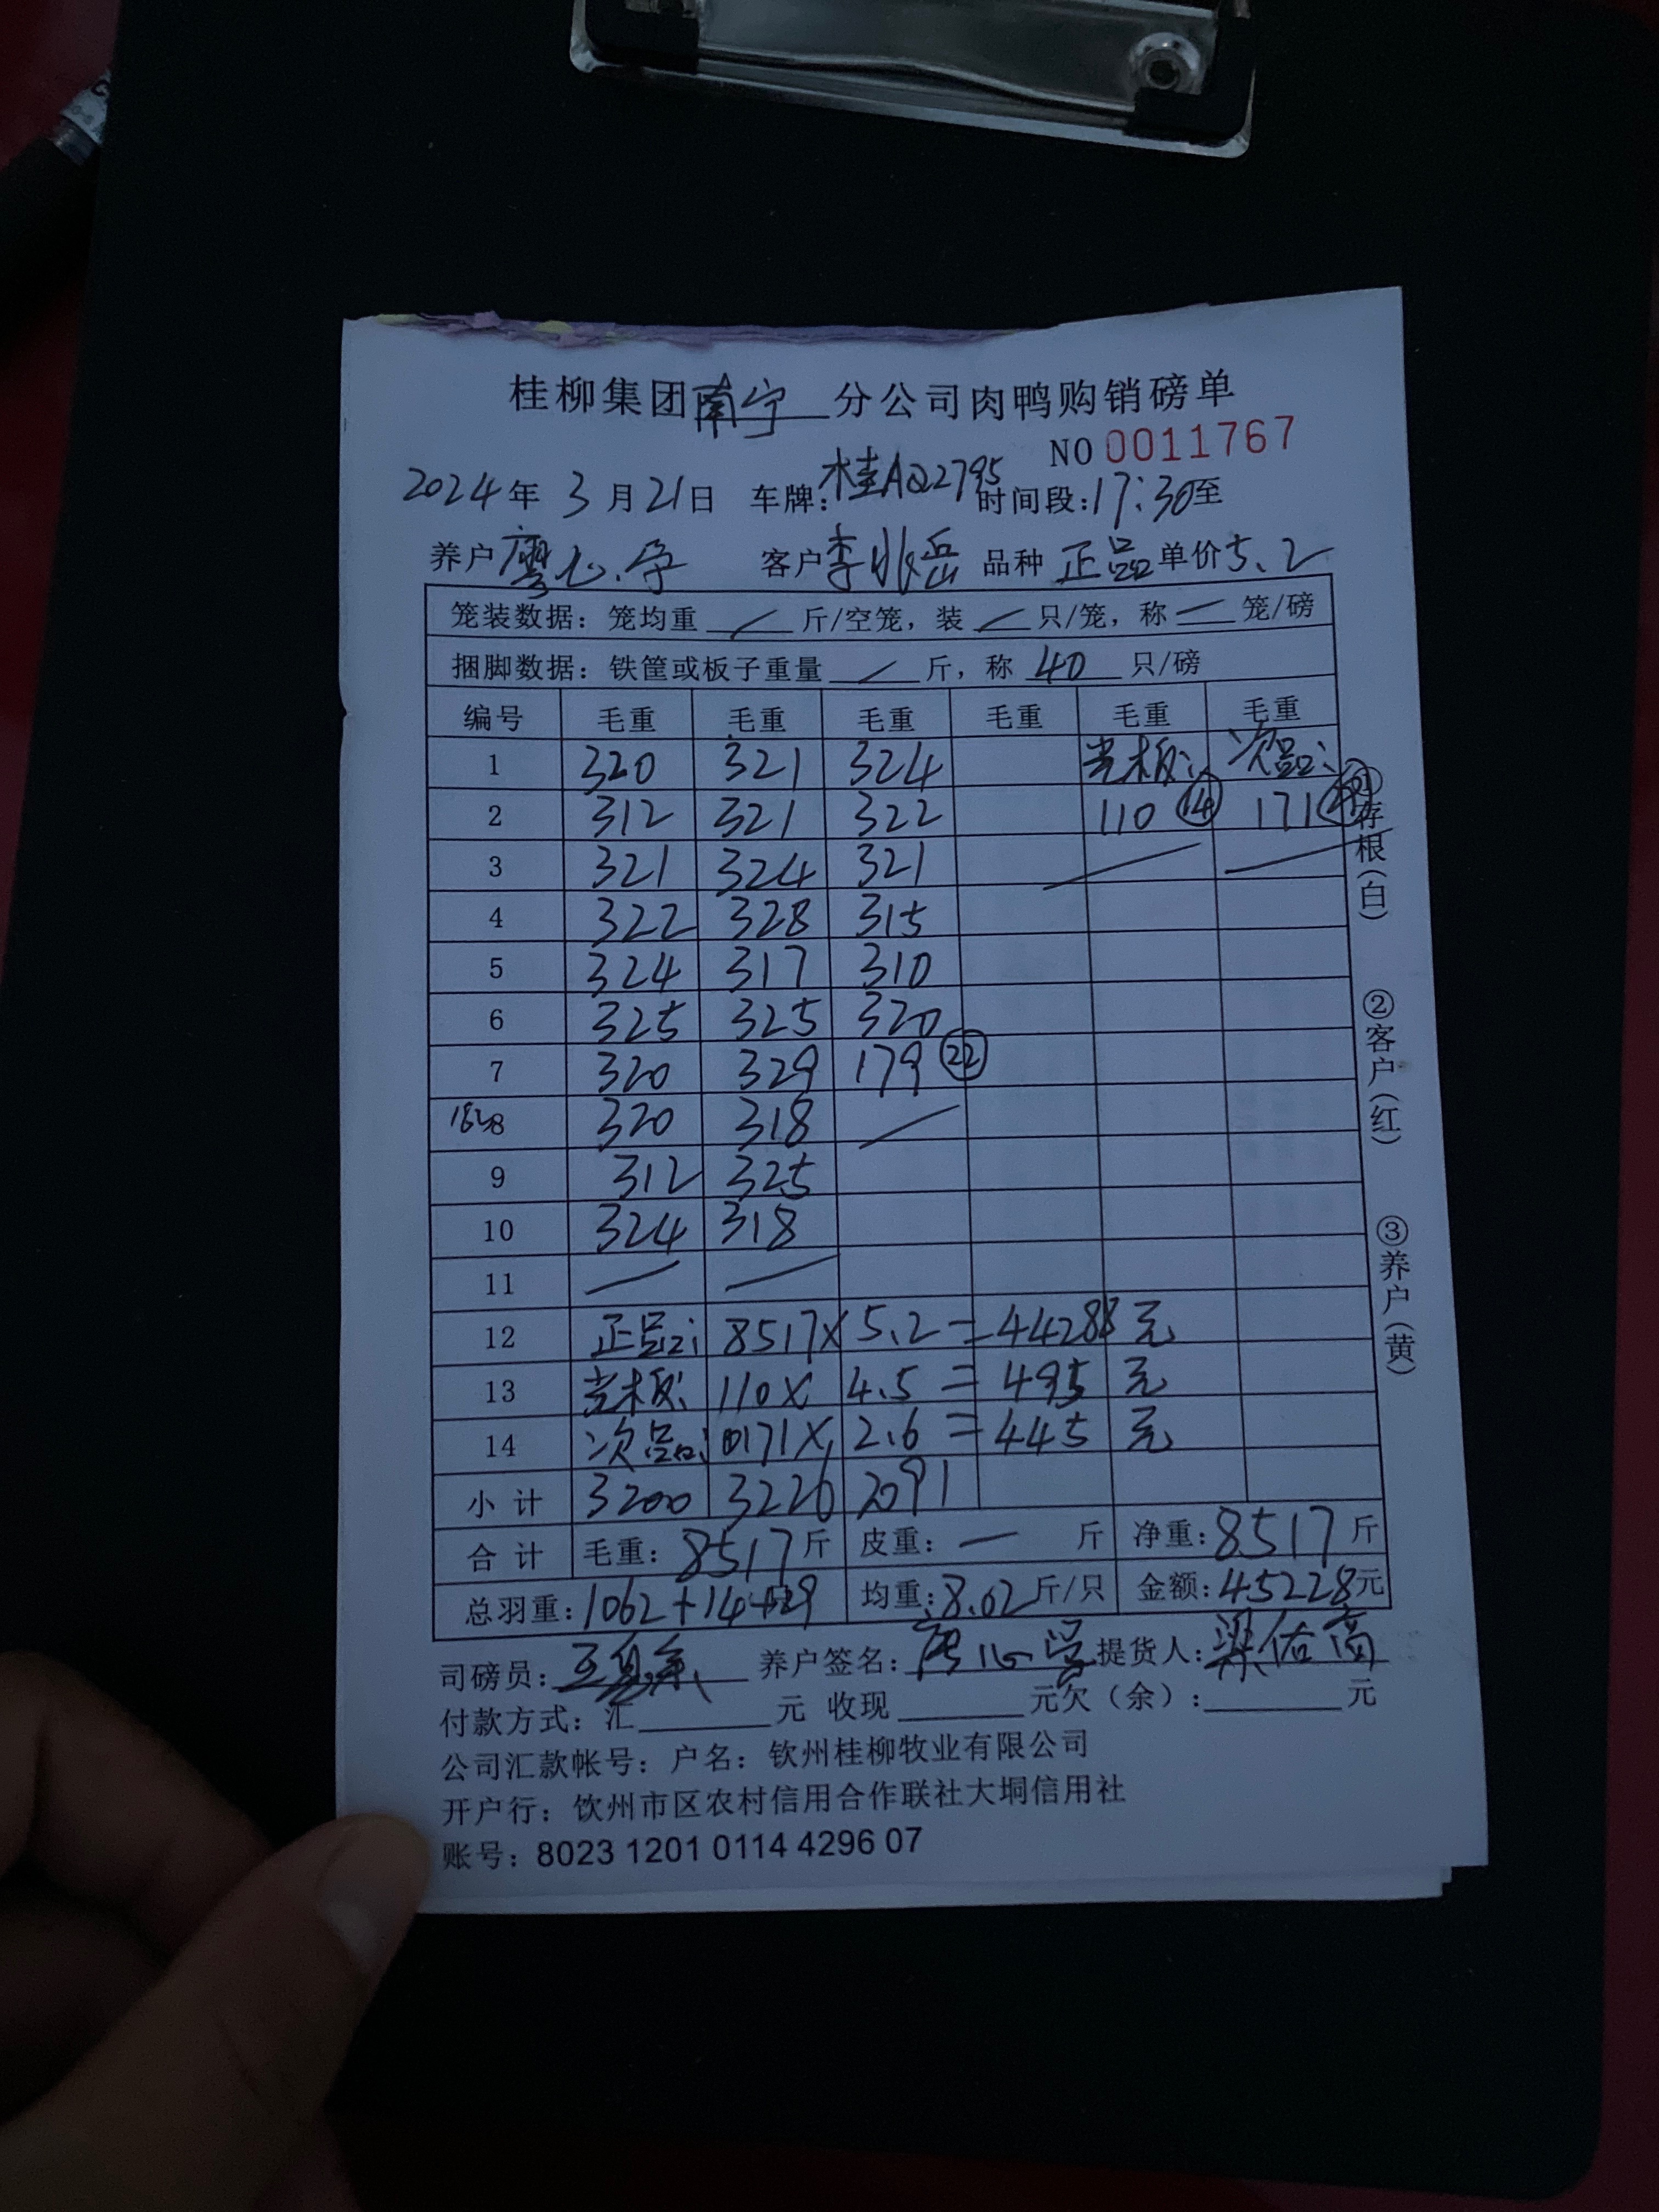 桂柳集团南宁分公司肉鸭购销磅单
NO 0011767
2024年 3月21日 车牌:桂AQ2795 时间段:17:30至
养户 廖心学 客户 李 岳 品种 正品 单价 5.2
笼装数据: 笼均重 / 斤/空笼, 装 / 只/笼, 称 — 笼/磅
捆脚数据: 铁筐或板子重量 / 斤, 称 40 只/磅
编号 毛重 毛重 毛重 毛重 毛重 毛重
1 320 321 324 光板: 次品:
2 312 321 322 110 ⑭ 171
3 321 324 321 / /
4 322 328 315
5 324 317 310
6 325 325 320
7 320 329 179 ㉒
8 320 318 /
9 312 325
10 324 318
11 / /
12 正品: 8517×5.2=44288元
13 光板: 110×4.5=495元
14 次品: 171×2.6=445元
小计 3200 3226 2091
合计 毛重: 8517斤 皮重: — 斤 净重: 8517斤
总羽重: 1062+14+29 均重: 8.02斤/只 金额: 45228元
司磅员: 养户签名: 提货人: 梁佑高
付款方式: 汇 元 收现 元欠(余): 元
公司汇款帐号: 户名: 钦州桂柳牧业有限公司
开户行: 饮州市区农村信用合作联社大垌信用社
账号: 8023 1201 0114 4296 07
①存根(白)
②客户(红)
③养户(黄)